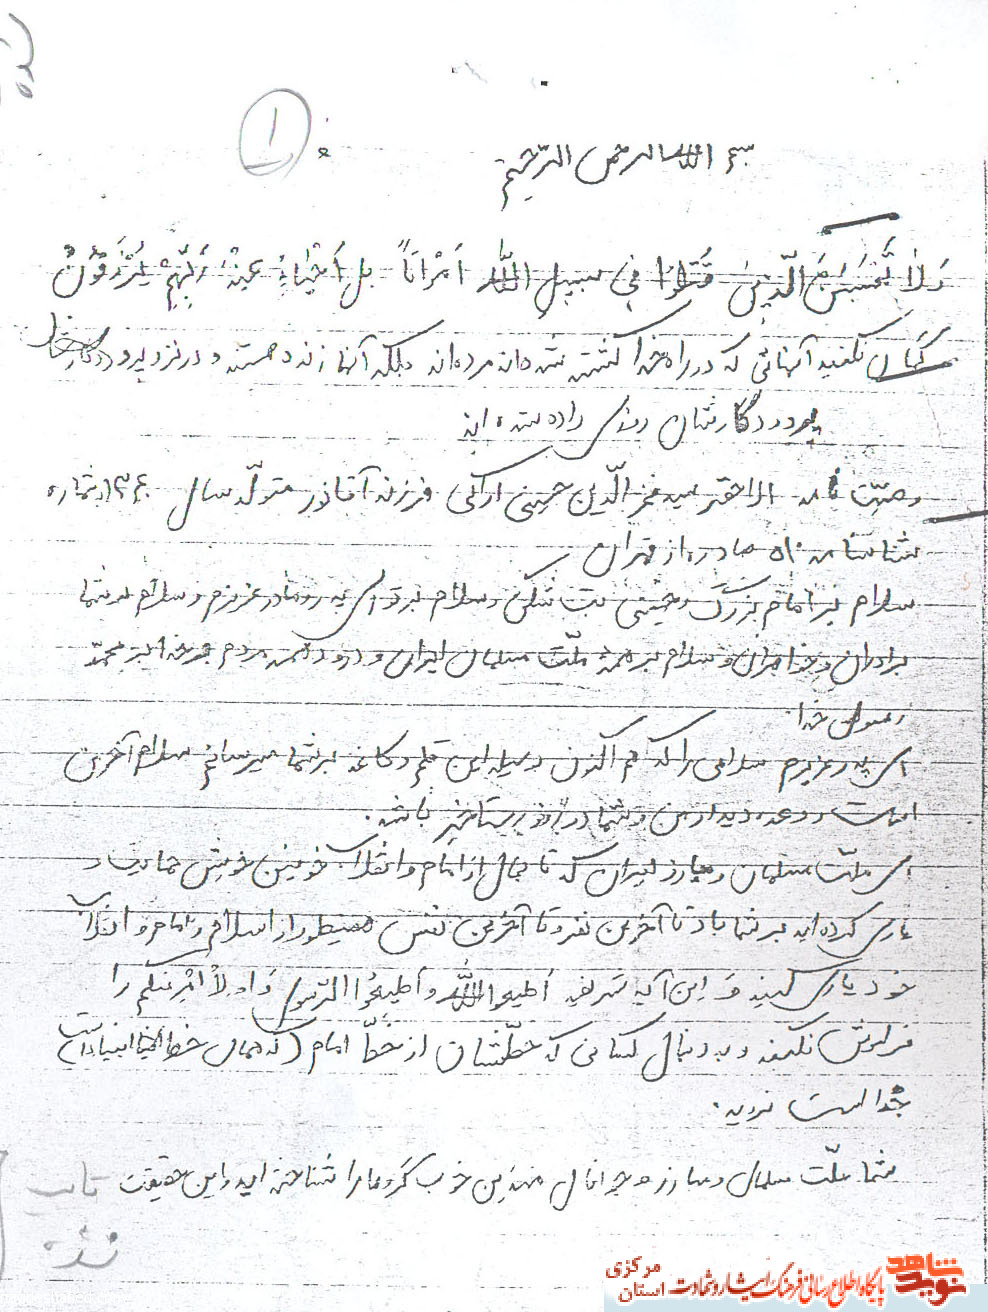 ۱
بسم الله الرحمن الرحیم
وَلا تَحْسَبَنَّ الَّذینَ قُتِلوُا فی سبیلِ اللّه اَمْواتاً بل اَحْیاءٌ عِنْدَ رَبّهِمْ یُرْزَقُونْ
گمان نکنید آنهائی که در راه خدا کشته شده‌اند مرده‌اند بلکه آنها زنده هستند و در نزد
پروردگارشان روزی داده شده اند
وصیّت نامه الاحقر سید فخرالّدین حسینی اراکی فرزند آقانور متولّد سال ۱۳۴۰ بشماره
شناسنامه ۵۱۰ صادره از تهران
سلام بر امام بزرگ و خمینی بت شکن و سلام بر تو ای پدر و مادر عزیزم و سلام بر شما
برادران و خواهران و سلام بر همهٔ ملّت مسلمان ایران و درود همه مردم بر محمّد
رسول خدا.
ای پدر عزیزم سلامی را که هم اکنون بوسیله این قلم و کاغذ بر شما میرسانم سلام آخرین
است و وعده دیدار من و شما در روز رستاخیز باشد.
ای ملّت مسلمان و مبارز ایران که تا بحال از امام و انقلاب خونین خویش حمایت و
یاری کرده اید بر شما باد تا آخرین نفر و تا آخرین نفس همینطور از اسلام و امام و انقلاب
خود یاری کنید وَ این آیه شریفه اَطیعوالله و اَطیعُوا الرّسول وَ اولاُ اَمْرِ منکم را
فراموش نکنید و به دنبال کسانی که خطّشان از خطّ امام (که همان خط انبیاء است)
جُدا است نروید.
شما ملّت مسلمان و مبارز و جوانان خوب گروهها را شناخته اید و این حقیقت
تایپ
شده
شاهد
نوید
پایگاه اطلاع رسانی فرهنگ ایثار و شهادت استان مرکزی